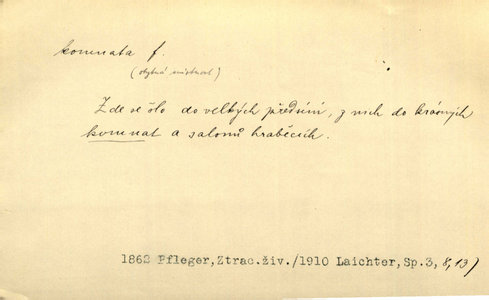 komnata f.
(obytná místnost)
Zde se šlo do velkých předsíní, z nich do krásných
komnat a salonů hraběcích.
1862 Pfleger, Ztrac.živ./1910 Laichter, Sp.3, 8, 137